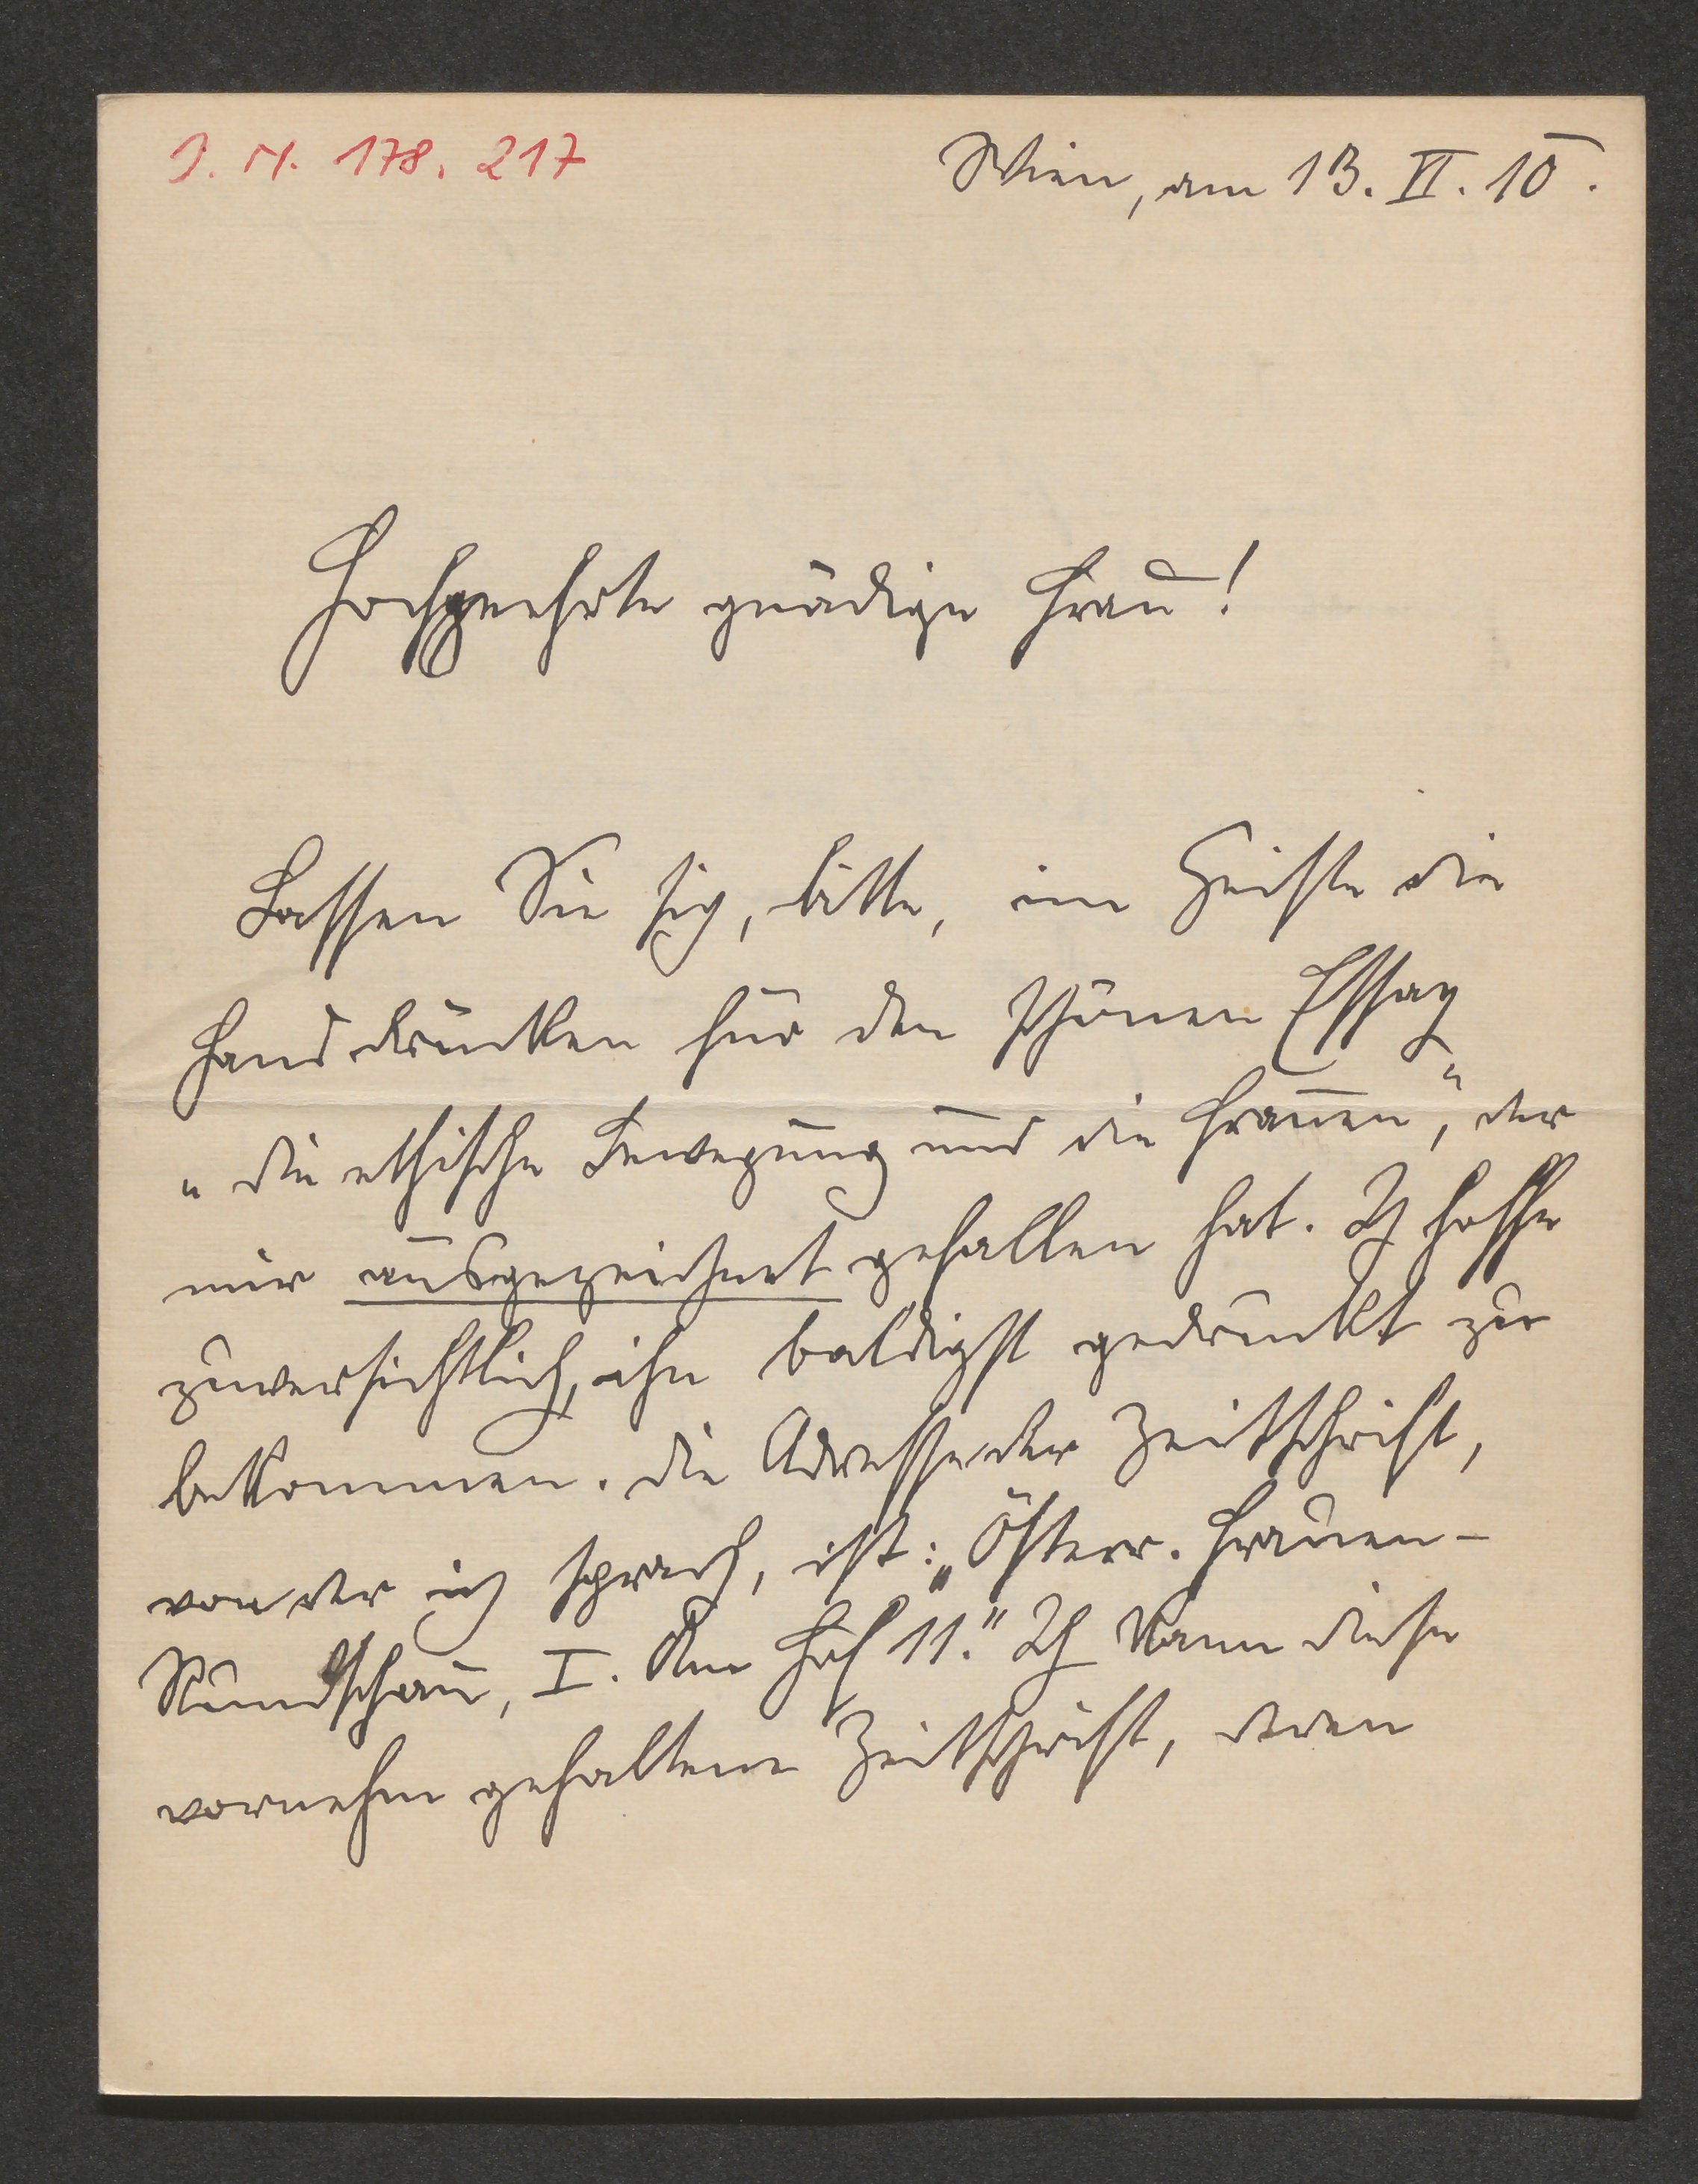 J. N. 178.217
Wien, am 13. II. 10.
Hochgeehrte gnädige Frau!
Lassen Sie sich, bitte, im Geiste die
Hand drücken für den schönen Essay
„die ethische Bewegung und die Frauen“, der
mir ausgezeichnet gefallen hat. Ich hoffe
zuversichtlich, ihn baldigst gedruckt zu
bekommen. Die Adresse der Zeitschrift,
von der ich sprach, ist: „Österr. Frauen-
Rundschau, I. Am Hof 11.“ Ich kann diese
vornehm gehaltene Zeitschrift, deren